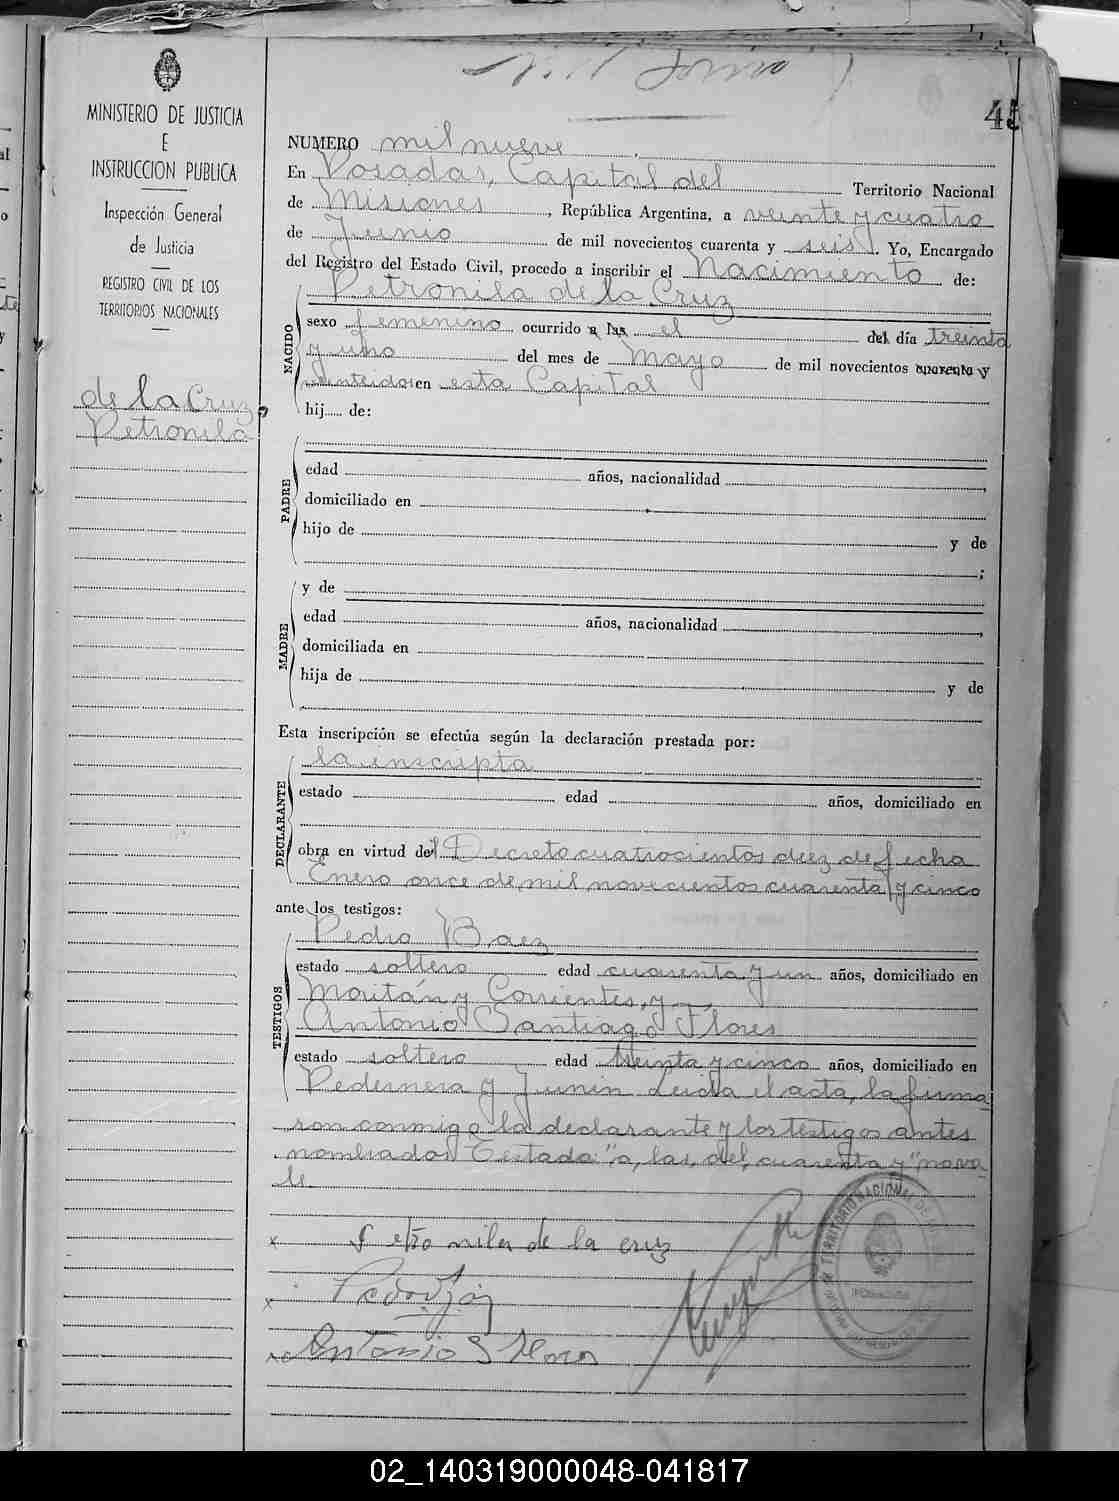 45
MINISTERIO DE JUSTICIA
E
INSTRUCCION PUBLICA
Inspección General
de Justicia
REGISTRO CIVIL DE LOS
TERRITORIOS NACIONALES
de la Cruz,
Petronila
NUMERO mil nueve.
En Posadas, Capital del Territorio Nacional
de Misiones, República Argentina, a veinte y cuatro
de Junio de mil novecientos cuarenta y seis. Yo, Encargado
del Registro del Estado Civil, procedo a inscribir el Nacimiento de:
Petronila de la Cruz
NACIDO
sexo femenino ocurrido a las el del día treinta
y uno del mes de Mayo de mil novecientos cuarenta y
veintidos en esta Capital
hij..... de:
PADRE
edad años, nacionalidad
domiciliado en
hijo de y de
;
MADRE
y de
edad años, nacionalidad
domiciliada en
hija de y de
Esta inscripción se efectúa según la declaración prestada por:
DECLARANTE
la inscripta
estado edad años, domiciliado en
obra en virtud del Decreto cuatrocientos diez de fecha
Enero once de mil novecientos cuarenta y cinco
ante los testigos:
TESTIGOS
Pedro Baez
estado soltero edad cuarenta y un años, domiciliado en
Moritán y Corrientes, y
Antonio Santiago Flores
estado soltero edad treinta y cinco años, domiciliado en
Pedernera y Junin Leida el acta, la firma
ron conmigo la declarante y los testigos antes
nombrados Testado: "a, las, del, cuarenta y" no va
le.
x Petronila de la cruz
x
x Antonio S Flores
TERRITORIO NACIONAL DE
02_140319000048-041817